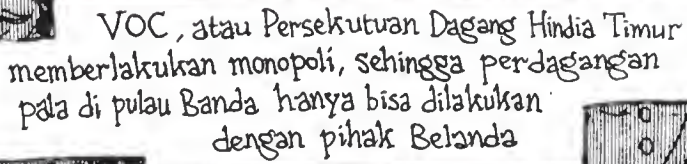 VOC, atau Persekutuan Dagang Hindia Timur
memberlakukan monopoli, sehingga perdagangan
pala di pulau Banda hanya bisa dilakukan
dengan pihak Belanda